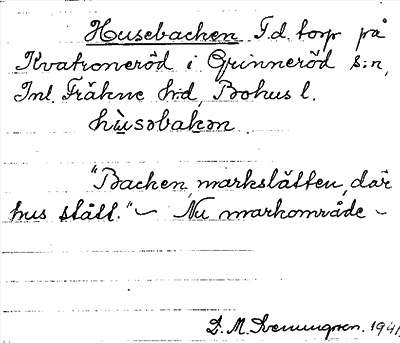 Husebacken F.d. torp på
Kvatroneröd i Grinneröd s:n,
Inl. Fräkne h:d, Bohus l.
hùsəbakən
"Backen, markslätten, där
hus stått." ~ Nu markområde ~
D. M. Svenungson. 1941.